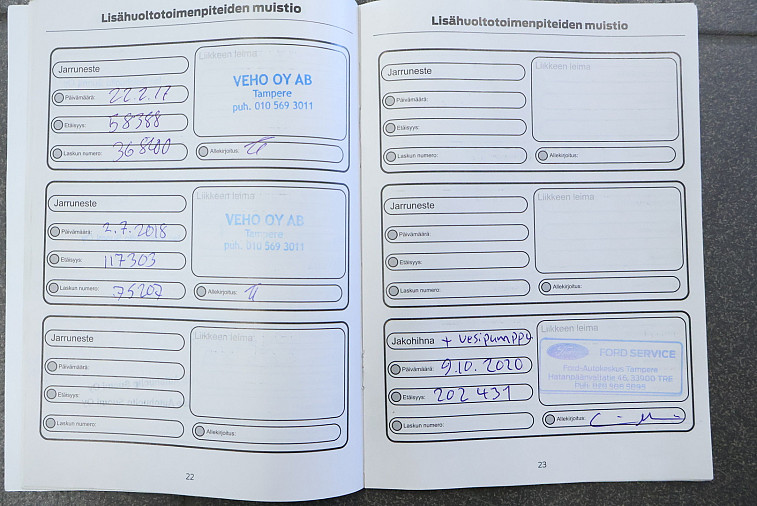 Lisähuoltotoimenpiteiden muistio
Jarruneste
Liikkeen leima
VEHO OY AB
Tampere
puh. 010 569 3011
Päivämäärä: 22.2.17
Etäisyys: 58388
Laskun numero: 36800
Allekirjoitus:
Jarruneste
Liikkeen leima
VEHO OY AB
Tampere
puh. 010 569 3011
Päivämäärä: 2.7.2018
Etäisyys: 117303
Laskun numero: 75207
Allekirjoitus:
Jarruneste
Liikkeen leima
Päivämäärä:
Etäisyys:
Laskun numero:
Allekirjoitus:
22
Lisähuoltotoimenpiteiden muistio
Jarruneste
Liikkeen leima
Päivämäärä:
Etäisyys:
Laskun numero:
Allekirjoitus:
Jarruneste
Liikkeen leima
Päivämäärä:
Etäisyys:
Laskun numero:
Allekirjoitus:
Jakohihna + vesipumppu
Liikkeen leima
FORD SERVICE
Ford Autokeskus Tampere
Hatanpäänvaltatie 46, 33900 TRE
Päivämäärä: 9.10.2020
Etäisyys: 202 431
Laskun numero:
Allekirjoitus:
23